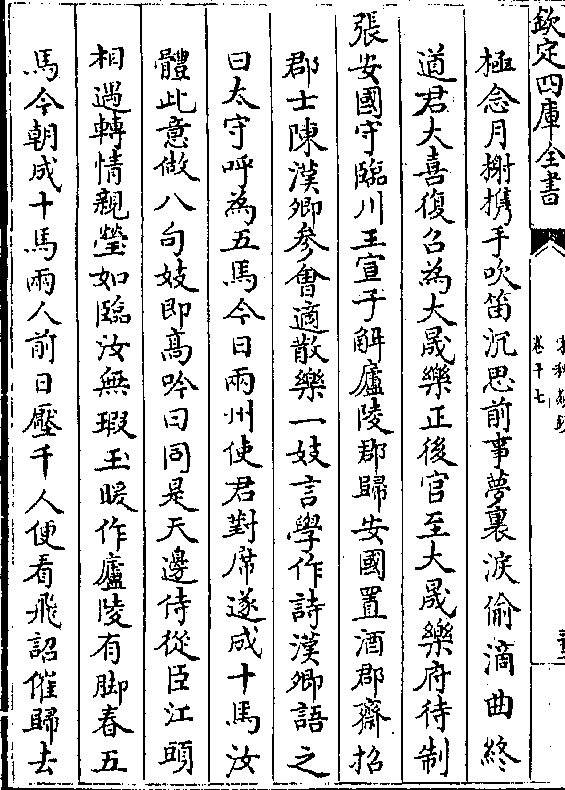 欽定四庫全書
卷五十七
極念月榭擕手吹笛沉思前事夢裏淚偷滴曲終
道君大喜復召為大晟樂正後官至大晟樂府待制
張安國守臨川王宣子解廬陵郡歸安國置酒郡齋招
郡士陳漢卿參會適散樂一妓言學作詩漢卿語之
曰太守呼為五馬今日兩州使君對席遂成十馬汝
體此意做八句妓即髙吟曰同是天邊侍從臣江頭
相遇轉情親瑩如臨汝無瑕玉暖作廬陵有脚春五
馬今朝成十馬兩人前日壓千人便看飛詔催歸去